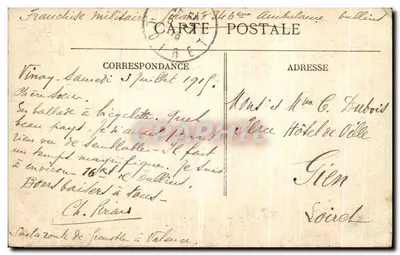 Franchise militaire
346eme Ambulance Tullins
LOIRET
CARTE POSTALE
CORRESPONDANCE
ADRESSE
Vinay. Samedi 3 Juillet 1915.
Chère Sœur.
En ballade à bicyclette. Quel
beau pays. Je n'avais jamais
rien vu de semblable. Il fait
un temps magnifique. Je suis
à environ 16 Ks de Tullins.
Bons baisers à tous.
Ch.
Sur la route de Grenoble à Valence.
Mons. et Mme C. Dubois
Place Hôtel de Ville
Gien
Loiret